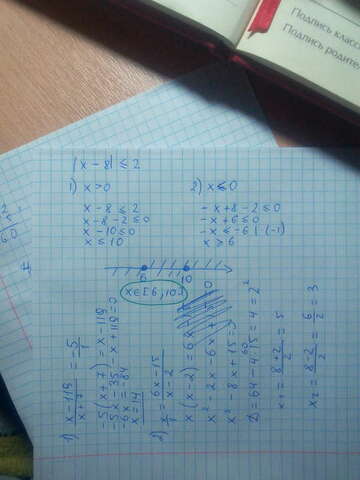 Подпись клас
Подпись родите
|x - 8| ≤ 2
1) x > 0
x - 8 ≤ 2
x - 8 - 2 ≤ 0
x - 10 ≤ 0
x ≤ 10
2) x ≤ 0
- x + 8 - 2 ≤ 0
- x + 6 ≤ 0
- x ≤ -6 | (-1)
x ≥ 6
6 10
x ∈ [6; 10]
1) x - 119 / x + 7 = -5 / 1
-5(x + 7) = x - 119
-5x - 35 = x + 119 = 0
-6x = -84
x = 14
2) x / 1 = 6x - 15 / x - 2
x(x - 2) = 6x -
x² - 2x - 6x +
x² - 8x + 15 = 0
D = 64 - 4·15 = 4 = 2²
60
x₁ = 8 + 2 / 2 = 5
x₂ = 8 - 2 / 2 = 6 / 2 = 3